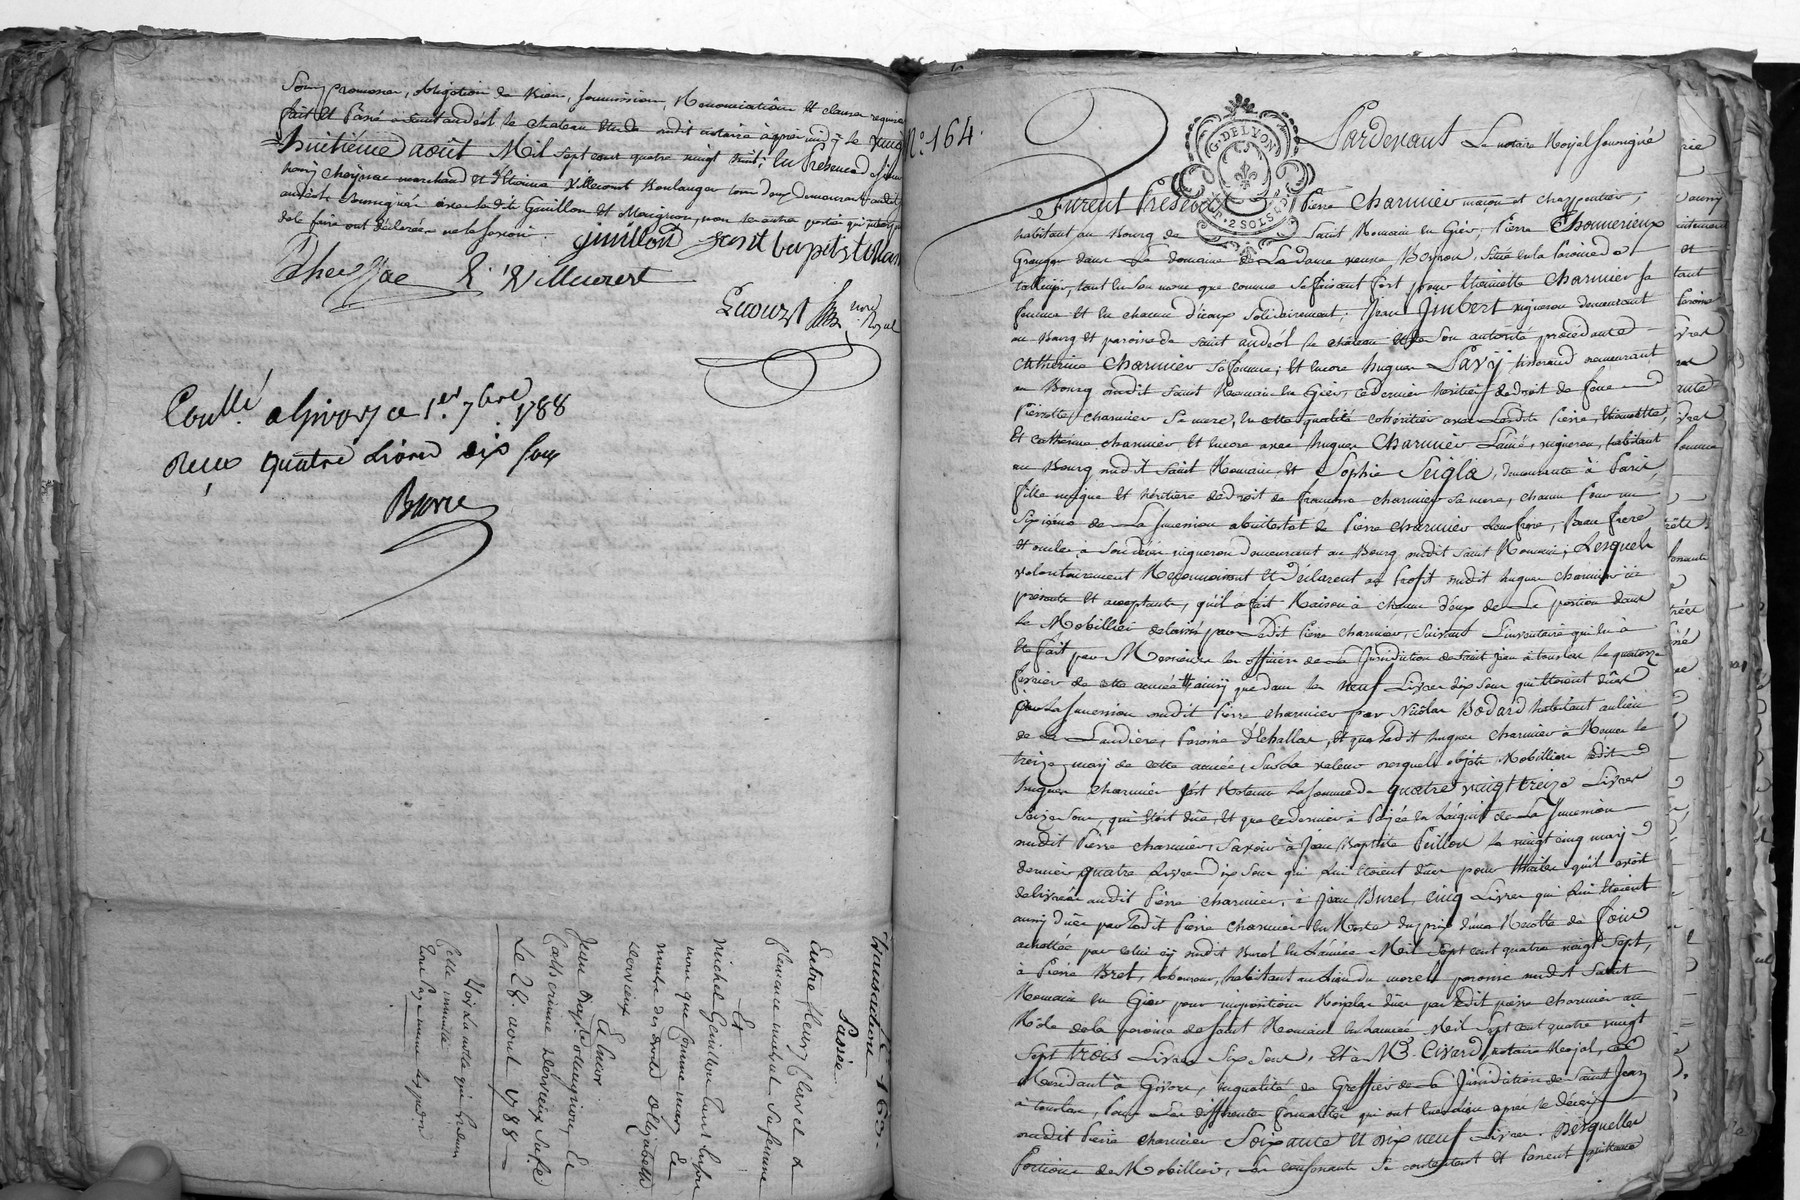 Sous promesses, obligation de biens, soumission, Renonciation et clauses requises
fait et Passé audit Saint andéol le chateau Etude dudit notaire après midy le vingt
huitième août Mil Sept cent quatre vingt huit; En Présence de sieur
choypnac marchand et Etienne Villemont Boulanger tous deux demeurants audit
Saint andéol Soussignés avec ledit Guillon et Mougnon, non les autres parties qui interpellés
de le faire ont déclaré ne le sçavoir.
guillon jean baptiste
E. Villemont
not. Royal
Con.llé a Givors ce 1.er 7bre 1788
Reçu quatre livres dix sous
Barre
Le N° 163.
Transaction
Passée
Entre fleury Clavel &
Clemence sa femme
Et
michel Guillon tant en son
nom que comme mary &
maitre des droits d'Elizabeth
dervieux
Encor
Jean Bap.te mougnon, &
Catherine dervieux sa f.e
Le 28 aout 1788
N.° 164.
G. DE LYON
2 SOLS
Pardevant Le notaire Royal soussigné
furent Présents Pierre Charmier maçon et charpentier,
habitant au Bourg de Saint Romain en Gier, Pierre Thomerieux
Granger dans Le domaine de La dame veuve Boyron, Situé en la Paroisse de
tant en Son nom que comme Se faisant fort pour Etiennette Charmier sa
femme et en chacun d'eaux Solidairement; Jean Imbert vigneron demeurant
au Bourg et paroisse de Saint andéol le chateau et de Son autorité procédante
Catherine Charmier Sa femme; et encore hugues Savy tisserand demeurant
au Bourg dudit Saint Romain en Gier, ce dernier héritier de droit de feue
Pierrette Charmier Sa mere, en cette qualité cohéritier avec Lesdits Pierre, Etiennette,
Et Catherine charmier et encore avec hugues Charmier L'ainé, vigneron, habitant
au Bourg dudit Saint Romain, et Sophie Seigla, demeurante à Paris,
fille unique et héritiere de droit de françoise charmier Sa mere, chacun Pour un
Sixième de La Succession abintestat de Pierre charmier Leur frere, Beau frere
Et oncle à Son décès vigneron demeurant au Bourg dudit Saint Romain; Lesquels
volontairement Reconnoissent Et Déclarent au Profit dudit hugues charmier ici
présent et acceptant, qu'il a fait Raison à chacun d'eux de La portion dans
Le Mobillier delaissé par Ledit Pierre charmier, Suivant L'inventaire qui en à
Eté fait par Messieurs les officiers de La Jurisdiction de Saint Jean à touslas le quatorze
fevrier de cette année ainsy que dans les neuf Livres dix sous qui étoient dûs
à La Succession dudit Pierre charmier par Nicolas Bodard habitant au lieu
de La Laudiere, Paroisse d'Echallas, et que Ledit hugues charmier à Reçues le
treize may de cette année, Sur La valeur desquels objets Mobilliers Ledit
hugues charmier s'est Retenu La Somme de quatre vingt treize Livres
Seize Sous, qui étoit düe, et que ce dernier à Payée en L'acquit de La Succession
dudit Pierre charmier, Savoir à Jean Baptiste Peillon le vingt cinq may
dernier quatre Livres Dix Sous qui Lui étoient dües pour thuiles qu'il avoit
delivrées audit Pierre charmier, à Jean Burel, Cinq Livres qui Lui étoient
aussy dües par Ledit Pierre charmier en Reste du prix d'une Récolte de foin
achettée par celui cy dudit Burel en L'année Mil Sept cent quatre vingt Sept,
à Pierre Bret, laboureur, habitant au Lieu du morel paroisse dudit Saint
Romain en Gier pour imposition Royales dües par Ledit pierre charmier au
Rôle de la paroisse de Saint Romain en L'année Mil Sept cent quatre vingt
Sept trois Livres Six Sous, et à M.e Civard, notaire Royal,
Résidant à Givors, en qualité de Greffier de La Jurisdiction de Saint Jean
à touslas, Pour Les différentes formalités qui ont eu lieu après le décès
dudit Pierre charmier Soixante et dix neuf Livres. Desquelles
Portions de Mobillier, Les consonants Se contentent et Passent quittance